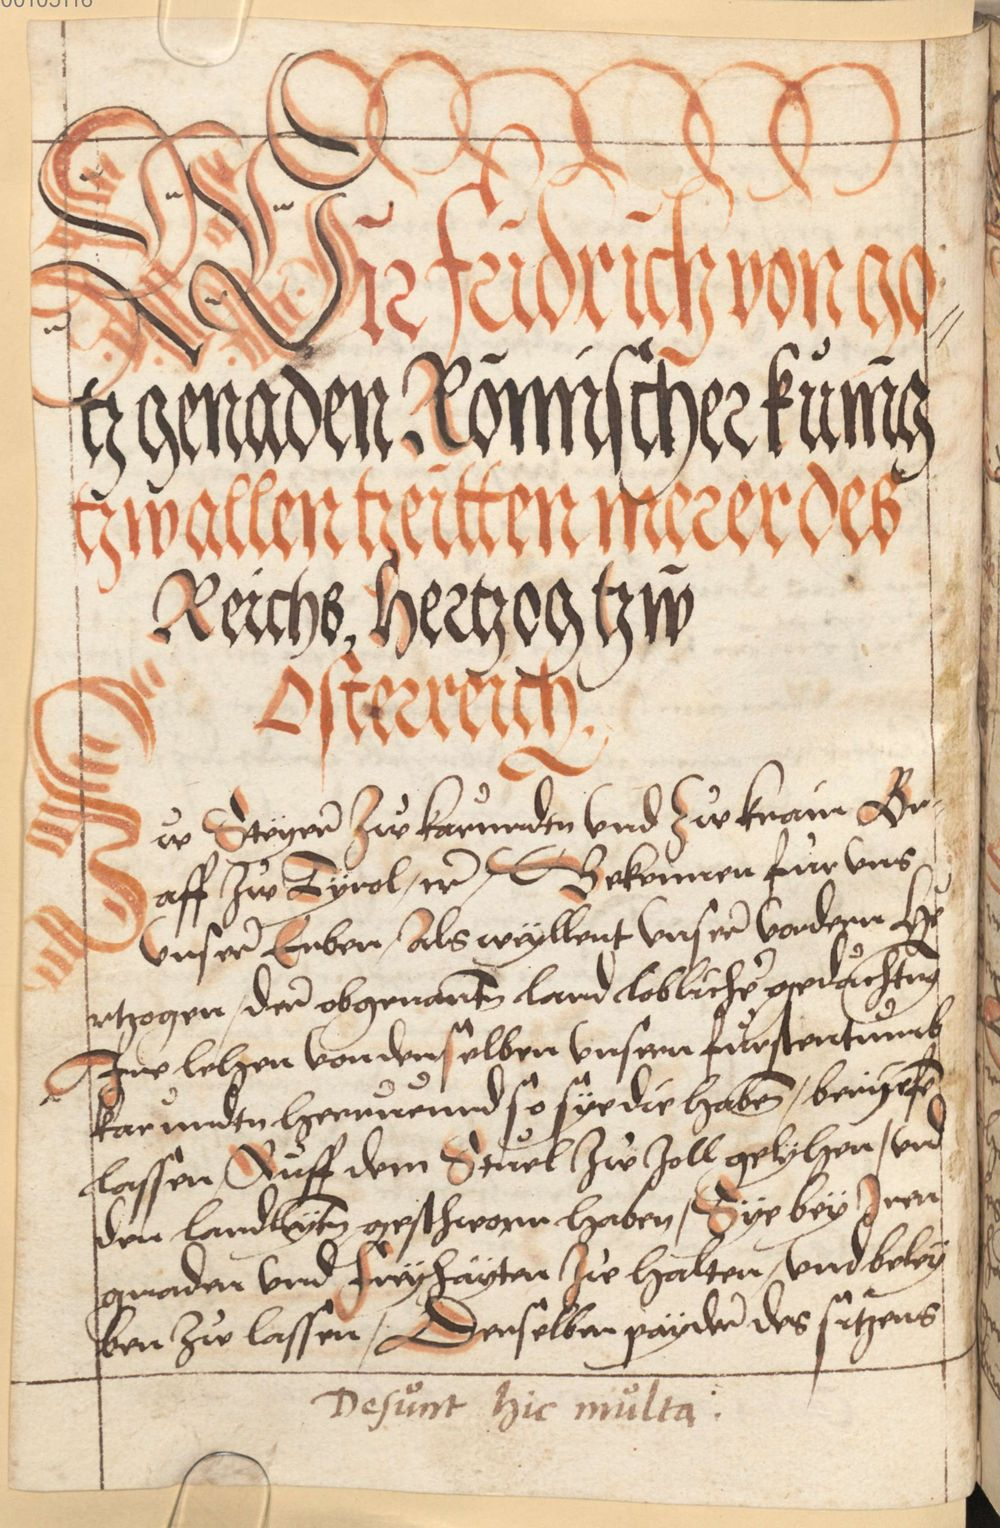 00105116
Wir fridrich von go
tz genaden Römischer kunig
tzw allen tzeitten merer des
Reichs, hertzog tzw
Osterreich.
zw Steyer Zw karnndtn vnd Zw krain Gr
aff Zw Tyrol, etc Bekennen fur vns
vnser Erben, Als weyllent vnser vordern He
rtzogen, der obgenantn land loblicher gedachtng
Ire lehen von denselben vnsern furstentumb
karnndtn herruerund so sye die haben,
lassen, Auff dem Stuel Zw Zoll gelyhen, vnd
den landleytn geschworn haben, Sye bey Iren
gnaden vnd freyhayten Zw halten, vnd beley
ben Zw lassen, Derselben payder des sitzens
Desunt hic multa: